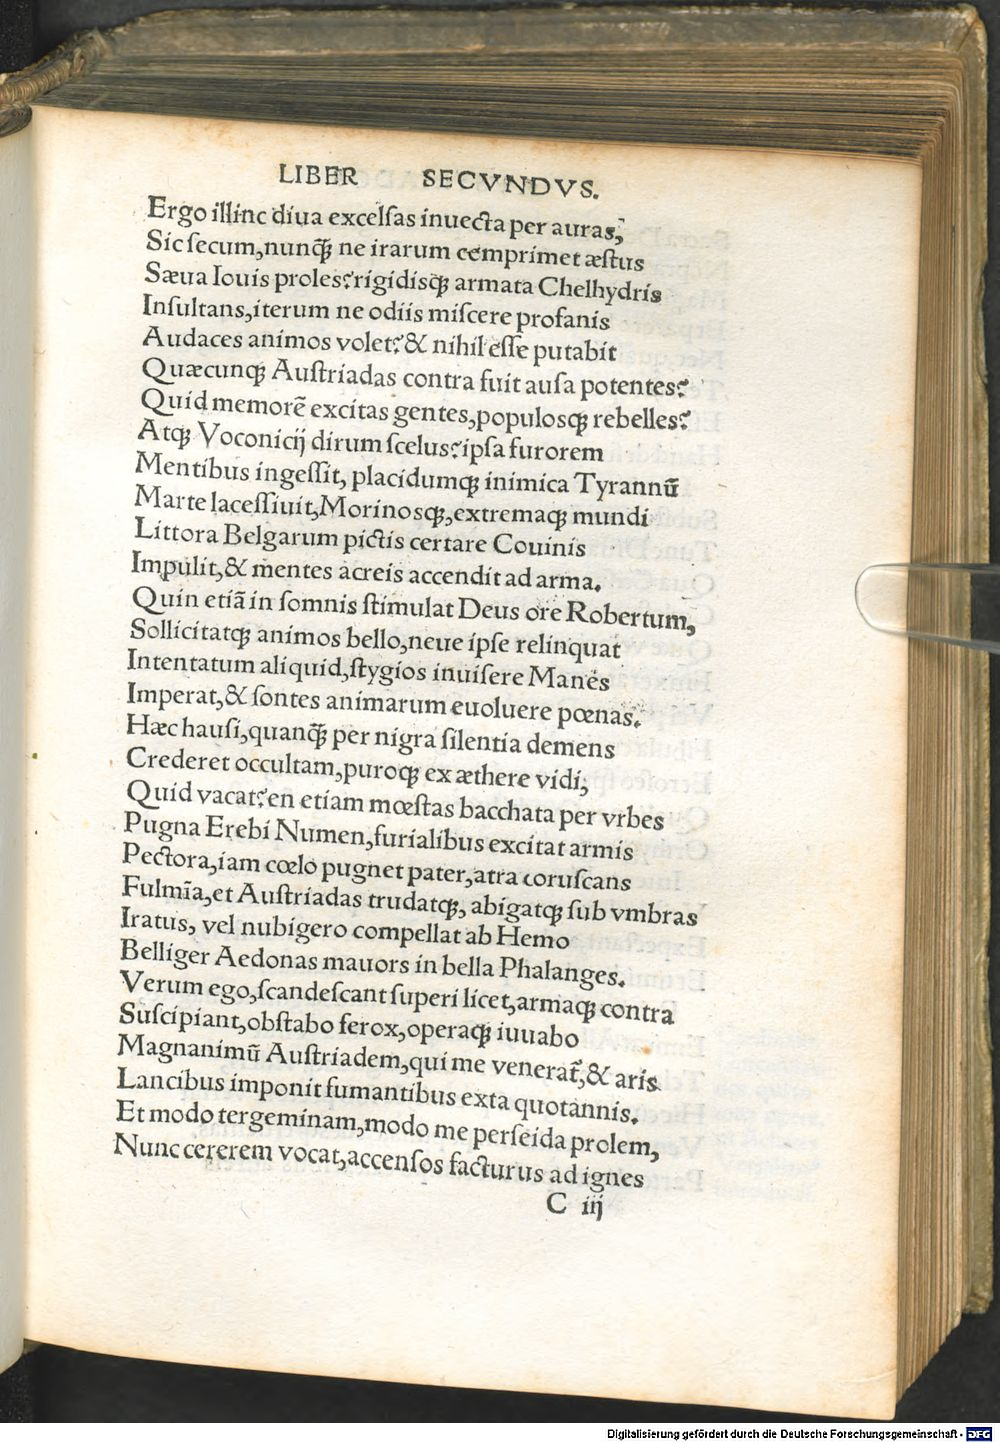 LIBER SECVNDVS.
Ergo illinc diua excelsas inuecta per auras,
Sic secum, nunꝗ̃ ne irarum comprimet æstus
Sæua Iouis proles? rigidisꝗ armata Chelhydris
Insultans, iterum ne odiis miscere profanis
Audaces animos volet? & nihil esse putabit
Quæcunꝗ Austriadas contra fuit ausa potentes?
Quid memorē excitas gentes, populosꝗ rebelles?
Atꝗ Voconicij dirum scelus? ipsa furorem
Mentibus ingessit, placidumꝗ inimica Tyrannū
Marte lacessiuit, Morinosꝗ, extremaꝗ mundi
Littora Belgarum pictis certare Couinis
Impulit, & mentes acreis accendit ad arma.
Quin etiā in somnis stimulat Deus ore Robertum,
Sollicitatꝗ animos bello, neue ipse relinquat
Intentatum aliquid, stygios inuisere Manes
Imperat, & sontes animarum euoluere pœnas.
Hæc hausi, quanꝗ̃ per nigra silentia demens
Crederet occultam, puroꝗ ex æthere vidi;
Quid vacat? en etiam mœstas bacchata per vrbes
Pugna Erebi Numen, furialibus excitat armis
Pectora, iam cœlo pugnet pater, atra coruscans
Fulmīa, et Austriadas trudatꝗ, abigatꝗ sub vmbras
Iratus, vel nubigero compellat ab Hemo
Belliger Aedonas mauors in bella Phalanges.
Verum ego, scandescant superi licet, armaꝗ contra
Suscipiant, obstabo ferox, operaꝗ iuuabo
Magnanimū Austriadem, qui me venerat̃, & aris
Lancibus imponit fumantibus exta quotannis.
Et modo tergeminam, modo me perseida prolem,
Nunc cererem vocat, accensos facturus ad ignes
C iij
Digitalisierung gefördert durch die Deutsche Forschungsgemeinschaft - DFG